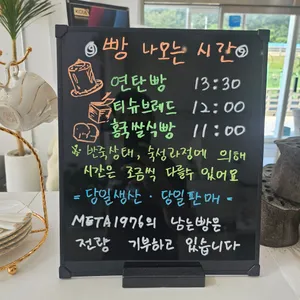 빵 나오는 시간
연탄빵 13:30
티슈브레드 12:00
흑쌀식빵 11:00
※ 반죽상태, 숙성과정에 의해
시간은 조금씩 다를수 있어요
= 당일생산 · 당일판매 =
META1976의 남는빵은
전량 기부하고 있습니다